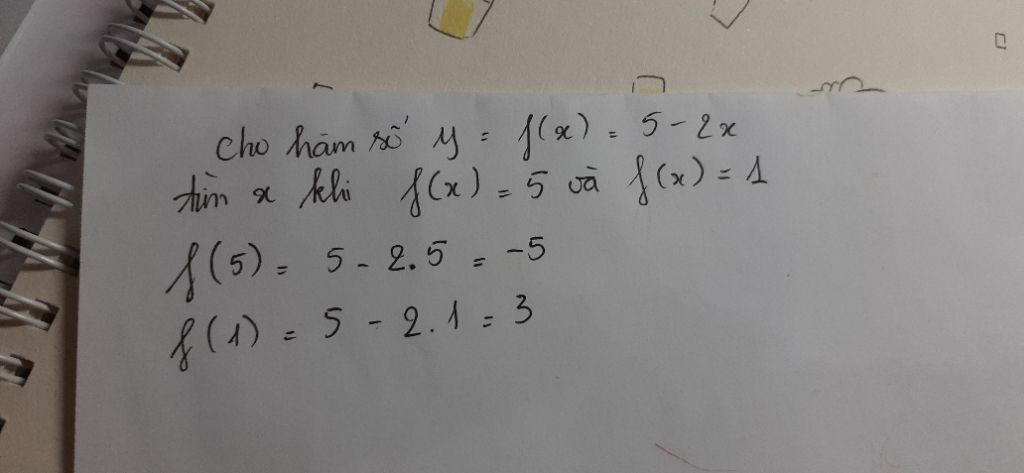 cho hàm số y = f(x) = 5 - 2x
tìm x khi f(x) = 5 và f(x) = 1
f(5) = 5 - 2.5 = -5
f(1) = 5 - 2.1 = 3